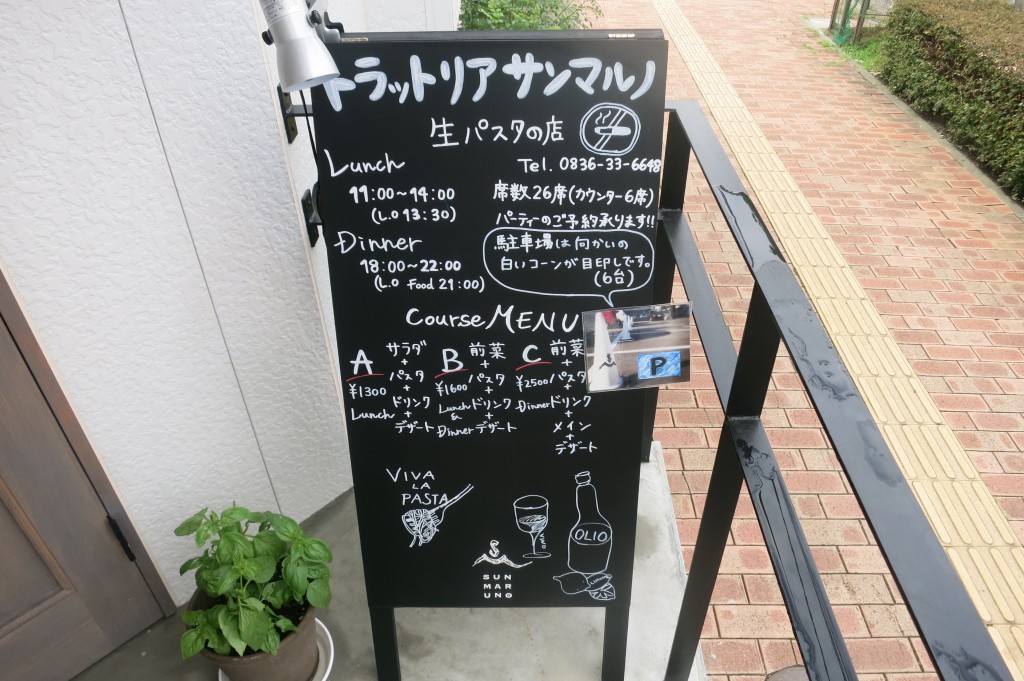 トラットリア サンマルノ
生パスタの店
Lunch
11:00～14:00
(L.O 13:30)
Dinner
18:00～22:00
(L.O Food 21:00)
Tel. 0836-33-6648
席数26席(カウンター6席)
パーティーのご予約承ります!!
駐車場は向かいの
白いコーンが目印しです。
(6台)
P
Course MENU
A
¥1300
Lunch
サラダ
+
パスタ
+
ドリンク
+
デザート
B
¥1600
Lunch
&
Dinner
前菜
+
パスタ
+
ドリンク
+
デザート
C
¥2500
Dinner
前菜
+
パスタ
+
ドリンク
+
メイン
+
デザート
VIVA
LA
PASTA
OLIO
SUN
MAR
UNO